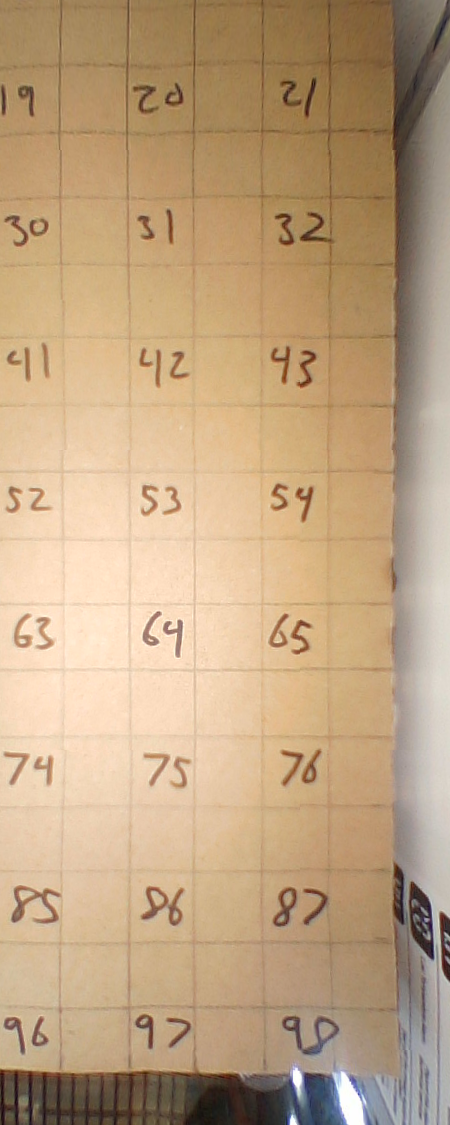 19 20 21
30 31 32
41 42 43
52 53 54
63 64 65
74 75 76
85 86 87
96 97 98